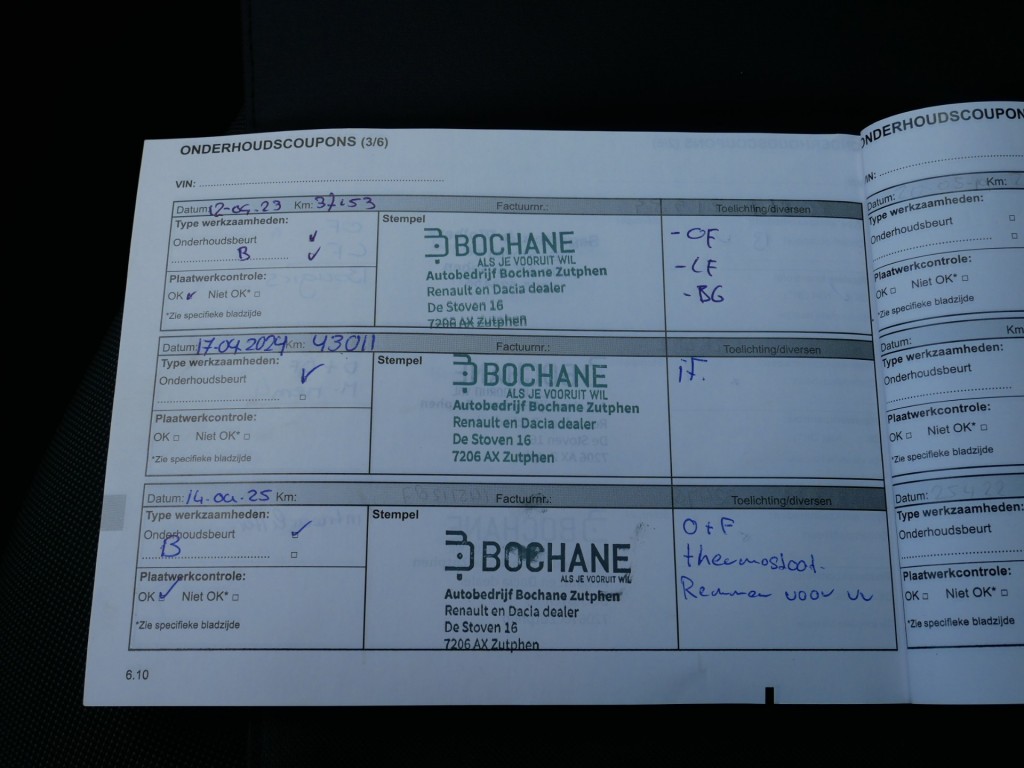 ONDERHOUDSCOUPONS (3/6)
VIN:
Datum: Km: Factuurnr.: Toelichting/diversen
Type werkzaamheden: Stempel
Onderhoudsbeurt ✓
B ✓
Plaatwerkcontrole:
OK ✓ Niet OK* □
*Zie specifieke bladzijde
BOCHANE
ALS JE VOORUIT WIL
Autobedrijf Bochane Zutphen
Renault en Dacia dealer
De Stoven 16
7206 AX Zutphen
- OF
- LF
- BG
Datum: 17-04.2024 Km: 43011 Factuurnr.: Toelichting/diversen
Type werkzaamheden: Stempel
Onderhoudsbeurt ✓
□
Plaatwerkcontrole:
OK □ Niet OK* □
*Zie specifieke bladzijde
BOCHANE
ALS JE VOORUIT WIL
Autobedrijf Bochane Zutphen
Renault en Dacia dealer
De Stoven 16
7206 AX Zutphen
Datum: Km: Factuurnr.: Toelichting/diversen
Type werkzaamheden: Stempel
Onderhoudsbeurt ✓
B □
Plaatwerkcontrole:
OK ✓ Niet OK* □
*Zie specifieke bladzijde
BOCHANE
ALS JE VOORUIT WIL
Autobedrijf Bochane Zutphen
Renault en Dacia dealer
De Stoven 16
7206 AX Zutphen
O+F
thermostaat.
Remmen voor
6.10
ONDERHOUDSCOUPON
VIN:
Datum: Km:
Type werkzaamheden:
Onderhoudsbeurt □
□
Plaatwerkcontrole:
OK □ Niet OK* □
*Zie specifieke bladzijde
Datum: Km
Type werkzaamheden:
Onderhoudsbeurt
Plaatwerkcontrole:
OK □ Niet OK* □
*Zie specifieke bladzijde
Datum:
Type werkzaamheden:
Onderhoudsbeurt
Plaatwerkcontrole:
OK □ Niet OK* □
*Zie specifieke bladzijde